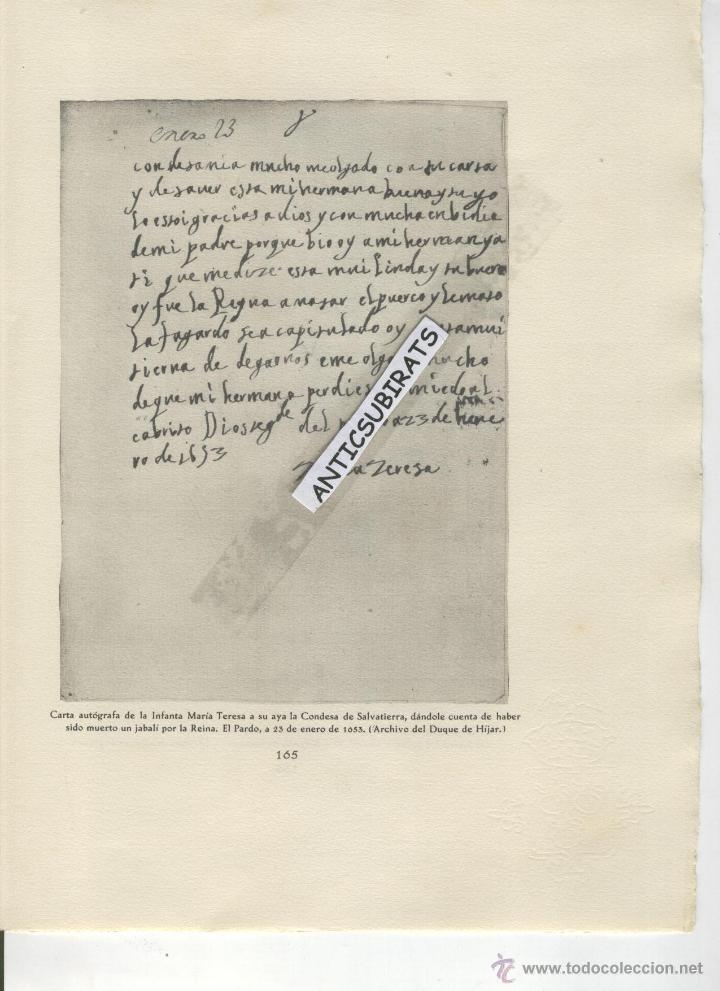 enero 23
condesa mia mucho me olgado con su carta
y de saver esta mi hermana buena y tu yo
lo estoi gracias a dios y con mucha enbidia
de mi padre porque bio oy a mi hermana ya
ti que me dize esta mui linda y tu buena
oy fue la Reyna a matar el puerco y le mato
la fagardo se a capitulado oy mui
tierna de dejarnos e me olg mucho
de que mi hermana perdies miedo al
cabrito Dios te gde del a 23 de hene
ro de 1653
Teresa
ANTICSUBIRATS
Carta autógrafa de la Infanta María Teresa a su aya la Condesa de Salvatierra, dándole cuenta de haber
sido muerto un jabalí por la Reina. El Pardo, a 23 de enero de 1653. (Archivo del Duque de Híjar.)
165
www.todocoleccion.net